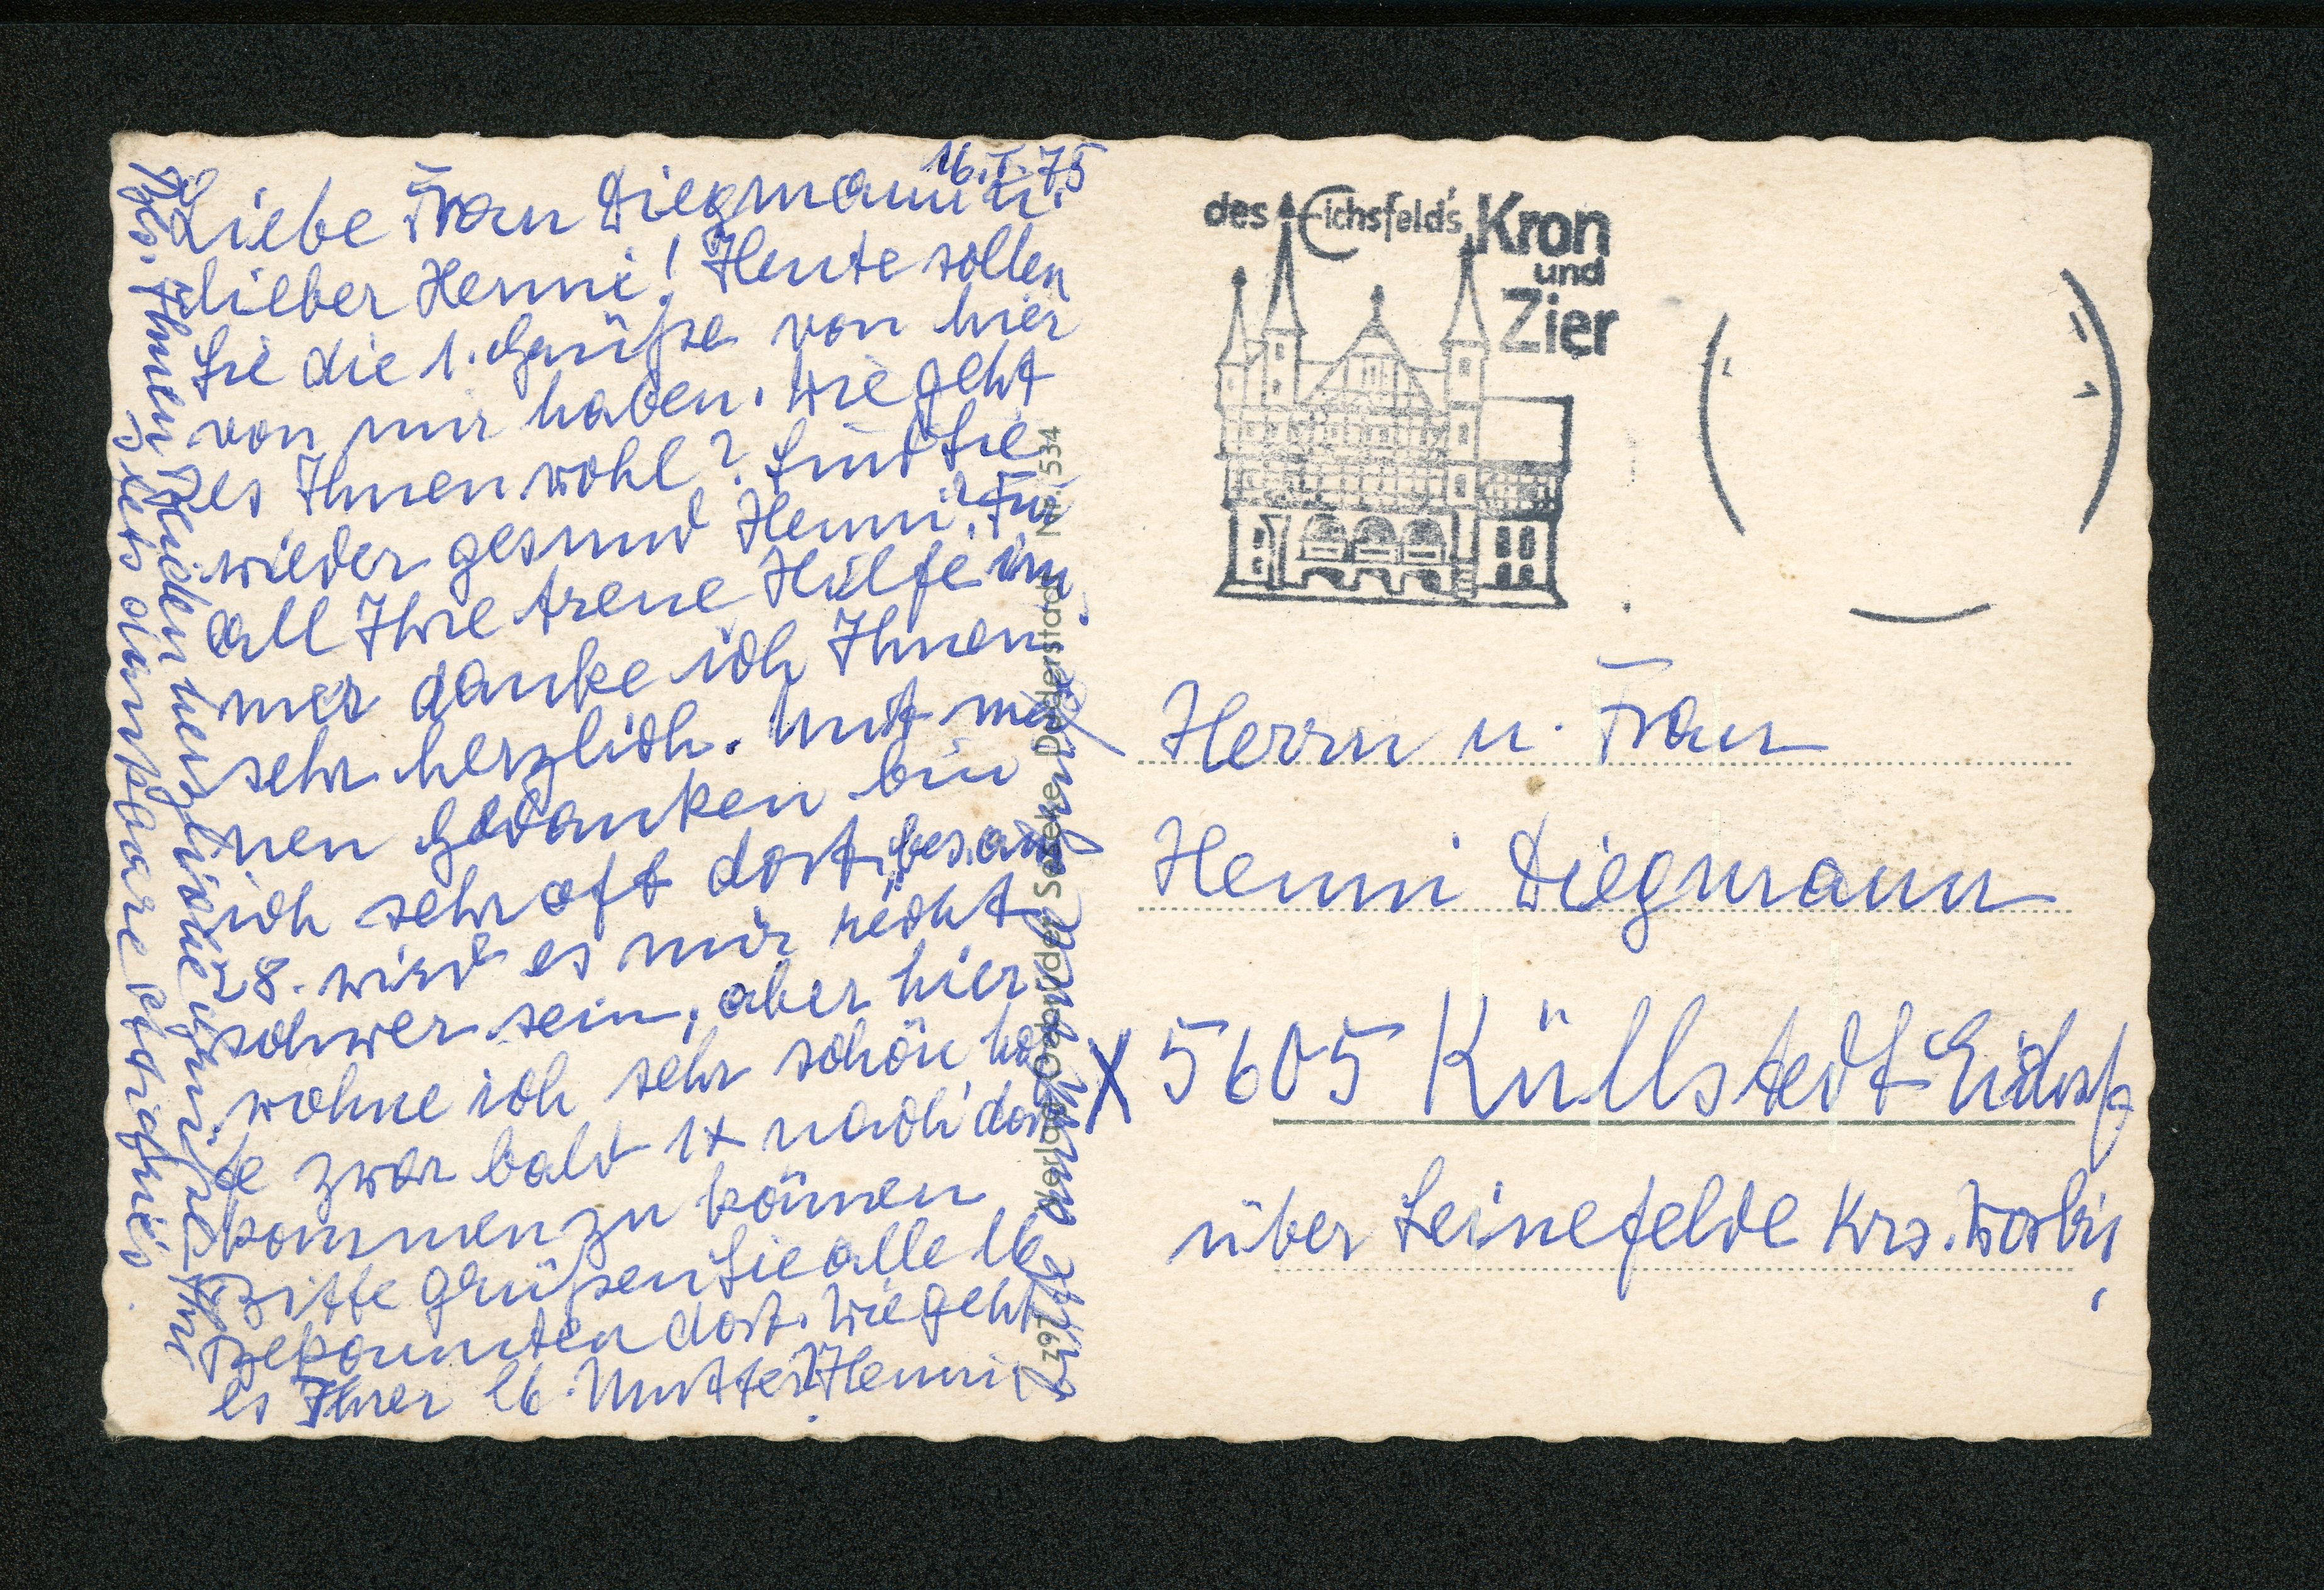 16.I.75
Liebe Frau Diegmann u.
lieber Henni! Heute sollen
Sie die 1. Grüße von hier
von mir haben. Wie geht
es Ihnen wohl? Sind Sie
wieder gesund Henni? Für
all Ihre treue Hilfe im
mer danke ich Ihnen
sehr herzlich. Mit mei
nen Gedanken bin
ich sehr oft dort, bes. am
28. wird es mir recht
schwer sein, aber hier
wohne ich sehr schön, hof
fe zwar bald 1x nach dort
kommen zu können
Bitte grüßen Sie alle lb
Bekannten dort. Wie geht
es Ihrer lb. Mutter? Henni
Bes. Ihnen Beiden herzliche Grüße Ihre
stets dankbare
Verlag Gebrüder Seseke, Duderstadt Nr. 534
des Eichsfeld's Kron
und
Zier
Herrn u. Frau
Henni Diegmann
X 5605 Küllstedt Eichsf
über Leinefelde Krs. Worbis